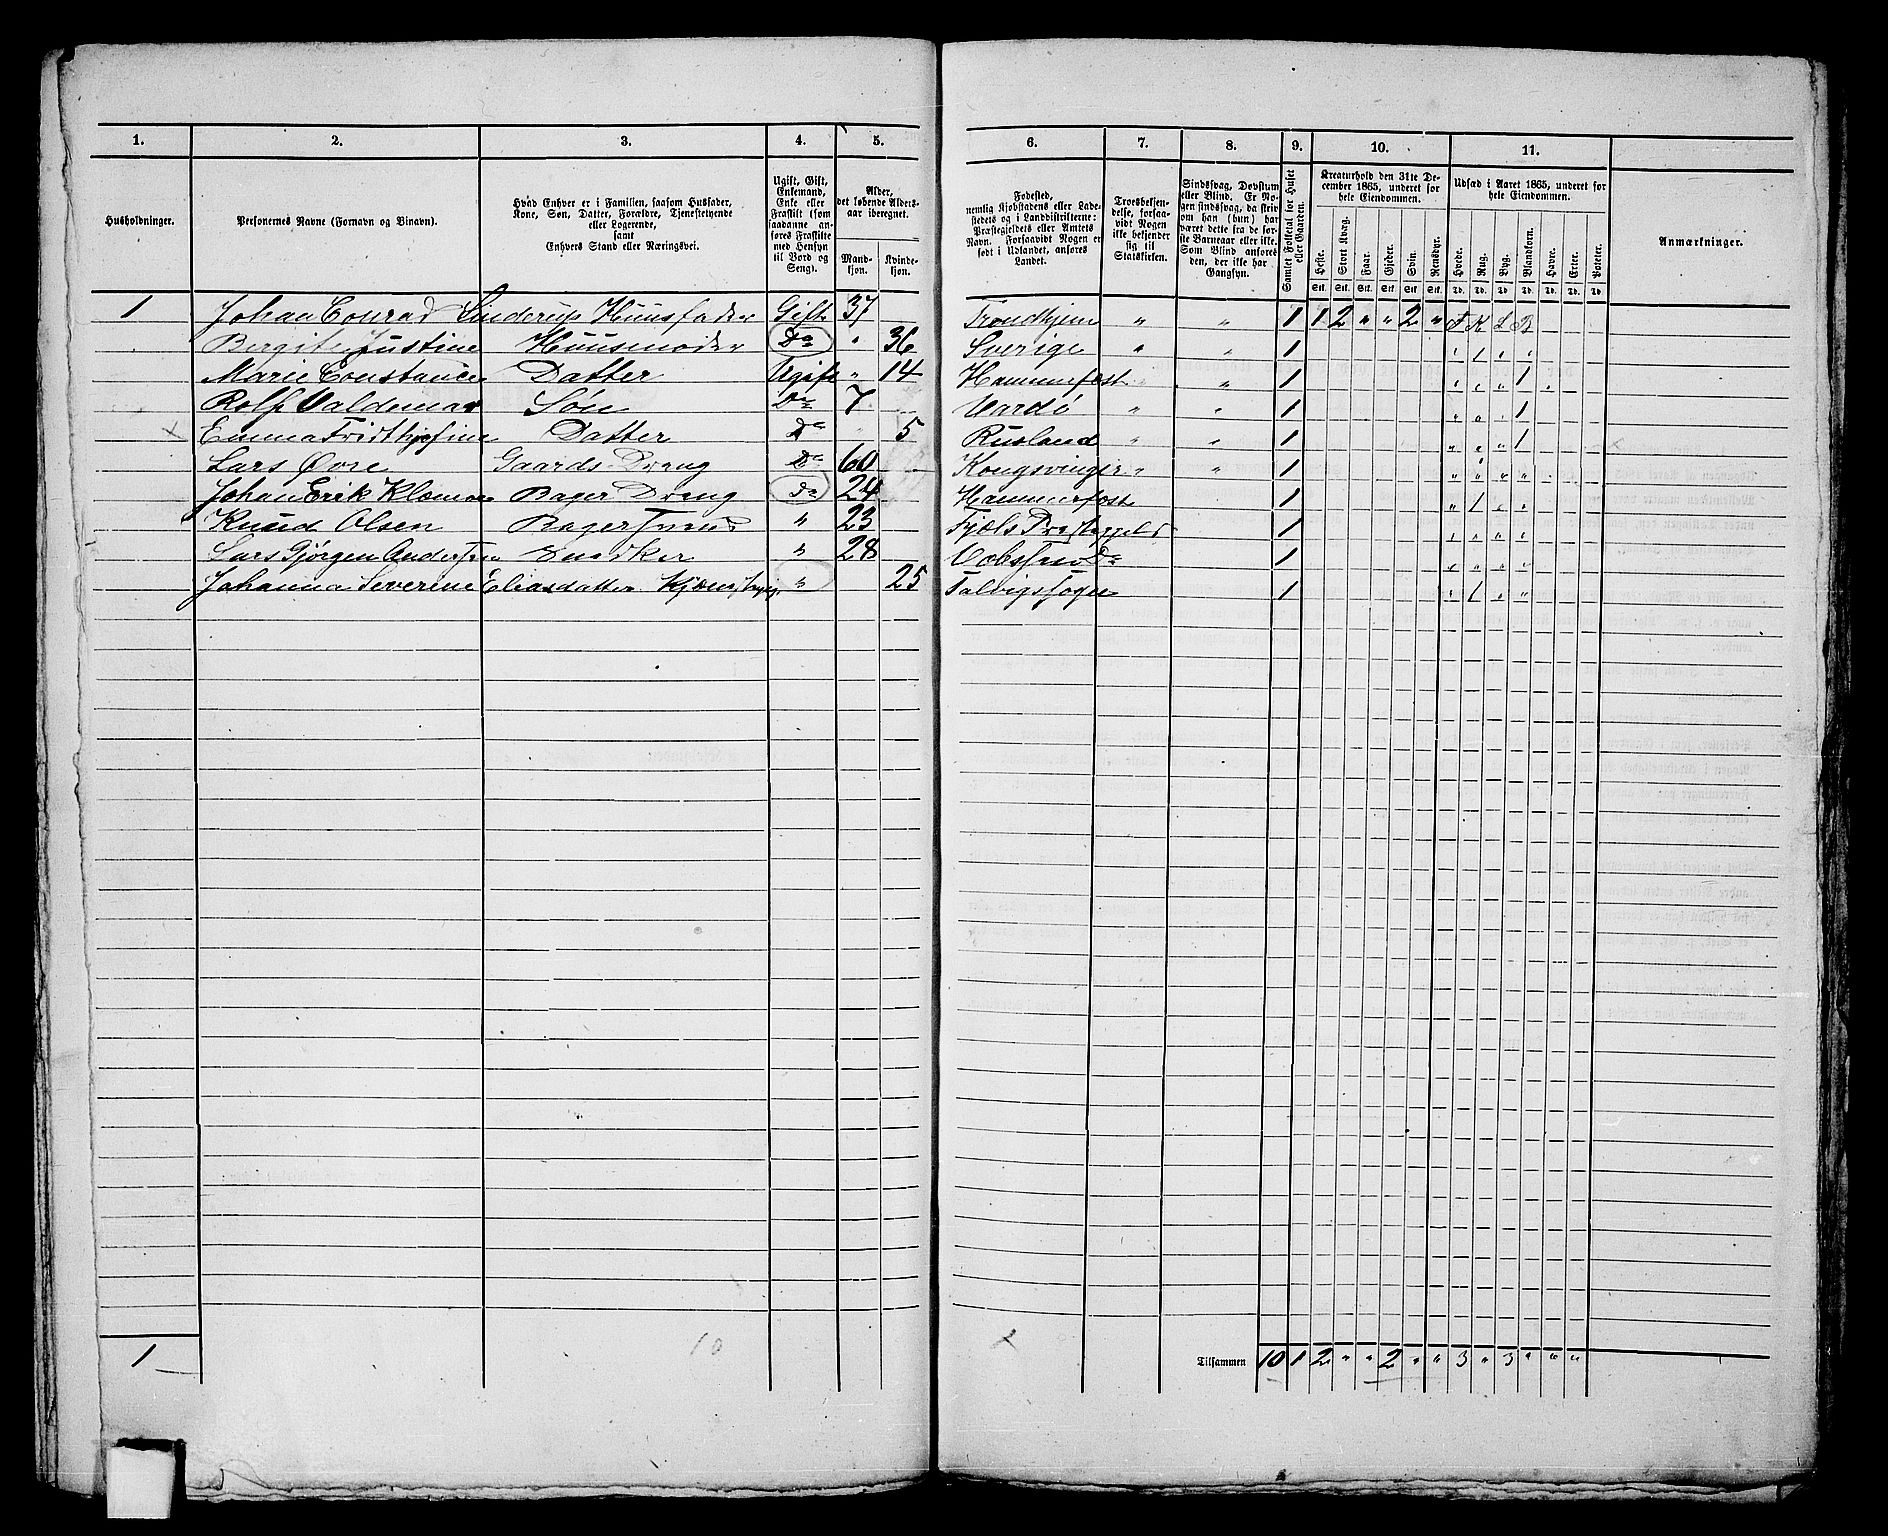 1. 2. 3. 4. 5. 6. 7. 8. 9. 10. 11.
Husholdninger.
Personernes Navne (Fornavn og Binavn).
Hvad Enhver er i Familien, saasom Husfader,
Kone, Søn, Datter, Forældre, Tjenestetyende
eller Logerende,
samt
Enhvers Stand eller Næringsvei.
Ugift, Gift,
Enkemand,
Enke eller
Fraskilt (som
saadanne an-
føres Fraskilte
med Hensyn
til Bord og
Seng).
Alder,
det løbende Alders-
aar iberegnet.
Mand-
kjøn.
Kvinde-
kjøn.
Fødested,
nemlig Kjøbstadens eller Lade-
stedets og i Landdistrikterne:
Præstegjeldets eller Amtets
Navn. Forsaavidt Nogen er
født i Udlandet, anføres
Landet.
Troesbekjen-
delse, forsaa-
vidt Nogen
ikke bekjender
sig til
Statskirken.
Sindssvag, Døvstum
eller Blind. Er No-
gen sindssvag, da skriv
om han (hun) har
været dette fra de før-
ste Barneaar eller ikke.
Som Blind ansøres
den, der ikke har
Gangsyn.
Samlet Folketal for Huset
eller Gaarden.
Kreaturhold den 31te De-
cember 1865, underet for
hele Eiendommen.
Heste. Stort Kvæg. Faar. Gjeder. Svin. Rensdyr.
Stk. Stk. Stk. Stk. Stk. Stk.
Udsæd i Aaret 1865, underet for
hele Eiendommen.
Hvede. Rug. Byg. Blandkorn. Havre. Erter. Poteter.
Td. Td. Td. Td. Td. Td. Td.
Anmærkninger.
1 Johan Conrad Huusfader Gift 37 Trondhjem " " 1 1 2 " " 2 "
Bergite Justine Huusmoder Do " 36 Sverige " " 1
Marie Constance Datter Ugift " 14 Hammerfest " " 1
Rolf Valdemar Søn Do 7 Vardö " " 1
Emma Fridthjofine Datter Do 5 Rusland " " 1
Lars Øvre Gaards Dreng Do 60 Kongsvinger " " 1
Johan Erik Bager Dreng Do 24 Hammerfest 1
Knud Olsen Bager 23 1
Lars Gjörgen Andersen Snedker " 28 1
Johanna Severine Eliasdatter " 25 Talvigsogn 1
1 10 Tilsammen 10 1 2 " " 2 " " 3 " 3 " " "